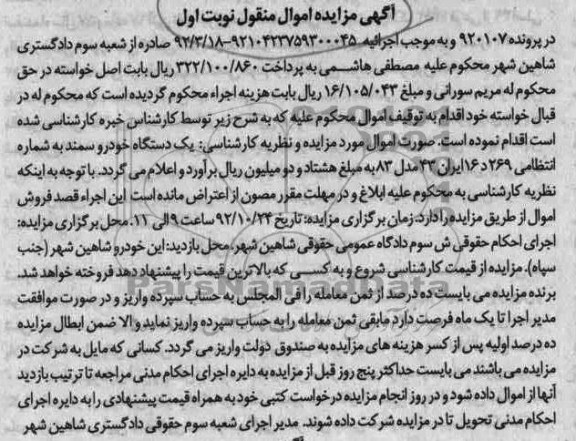 آگهی مزایده اموال منقول نوبت اول
در پرونده ۹۲۰۱۰۷ و به موجب اجرائیه ۹۲۱۰۴۲۳۷۵۹۳۰۰۰۴۵-۹۲/۳/۱۸ صادره از شعبه سوم دادگستری
شاهین شهر محکوم علیه مصطفی هاشمی به پرداخت ۳۲۲/۱۰۰/۸۶۰ ریال بابت اصل خواسته در حق
محکوم له مریم سورانی و مبلغ ۱۶/۱۰۵/۰۴۳ ریال بابت هزینه اجراء محکوم گردیده است که محکوم له در
قبال خواسته خود اقدام به توقیف اموال محکوم علیه که به شرح زیر توسط کارشناس خبره کارشناسی شده
است اقدام نموده است. صورت اموال مورد مزایده و نظریه کارشناسی: یک دستگاه خودرو سمند به شماره
انتظامی ۲۶۹ د ۱۶ ایران ۴۳ مدل ۸۳ به مبلغ هشتاد و دو میلیون ریال برآورد و اعلام می گردد. با توجه به اینکه
نظریه کارشناسی به محکوم علیه ابلاغ و در مهلت مقرر مصون از اعتراض مانده است این اجراء قصد فروش
اموال از طریق مزایده را دارد. زمان برگزاری مزایده: تاریخ ۹۲/۱۰/۲۴ ساعت ۹ الی ۱۱. محل برگزاری مزایده:
اجرای احکام حقوقی ش سوم دادگاه عمومی حقوقی شاهین شهر، محل بازدید: این خودرو شاهین شهر (جنب
سپاه). مزایده از قیمت کارشناسی شروع و به کسی که بالاترین قیمت را پیشنهاد دهد فروخته خواهد شد.
برنده مزایده می بایست ده درصد از ثمن معامله را فی المجلس به حساب سپرده واریز و در صورت موافقت
مدیر اجرا تا یک ماه فرصت دارد مابقی ثمن معامله را به حساب سپرده واریز نماید و الا ضمن ابطال مزایده
ده درصد اولیه پس از کسر هزینه های مزایده به صندوق دولت واریز می گردد. کسانی که مایل به شرکت در
مزایده می باشند می بایست حداکثر پنج روز قبل از مزایده به دایره اجرای احکام مدنی مراجعه تا ترتیب بازدید
آنها از اموال داده شود و در روز انجام مزایده درخواست کتبی خود به همراه قیمت پیشنهادی را به دایره اجرای
احکام مدنی تحویل تا در مزایده شرکت داده شوند. مدیر اجرای شعبه سوم حقوقی دادگستری شاهین شهر
ParsNamadData